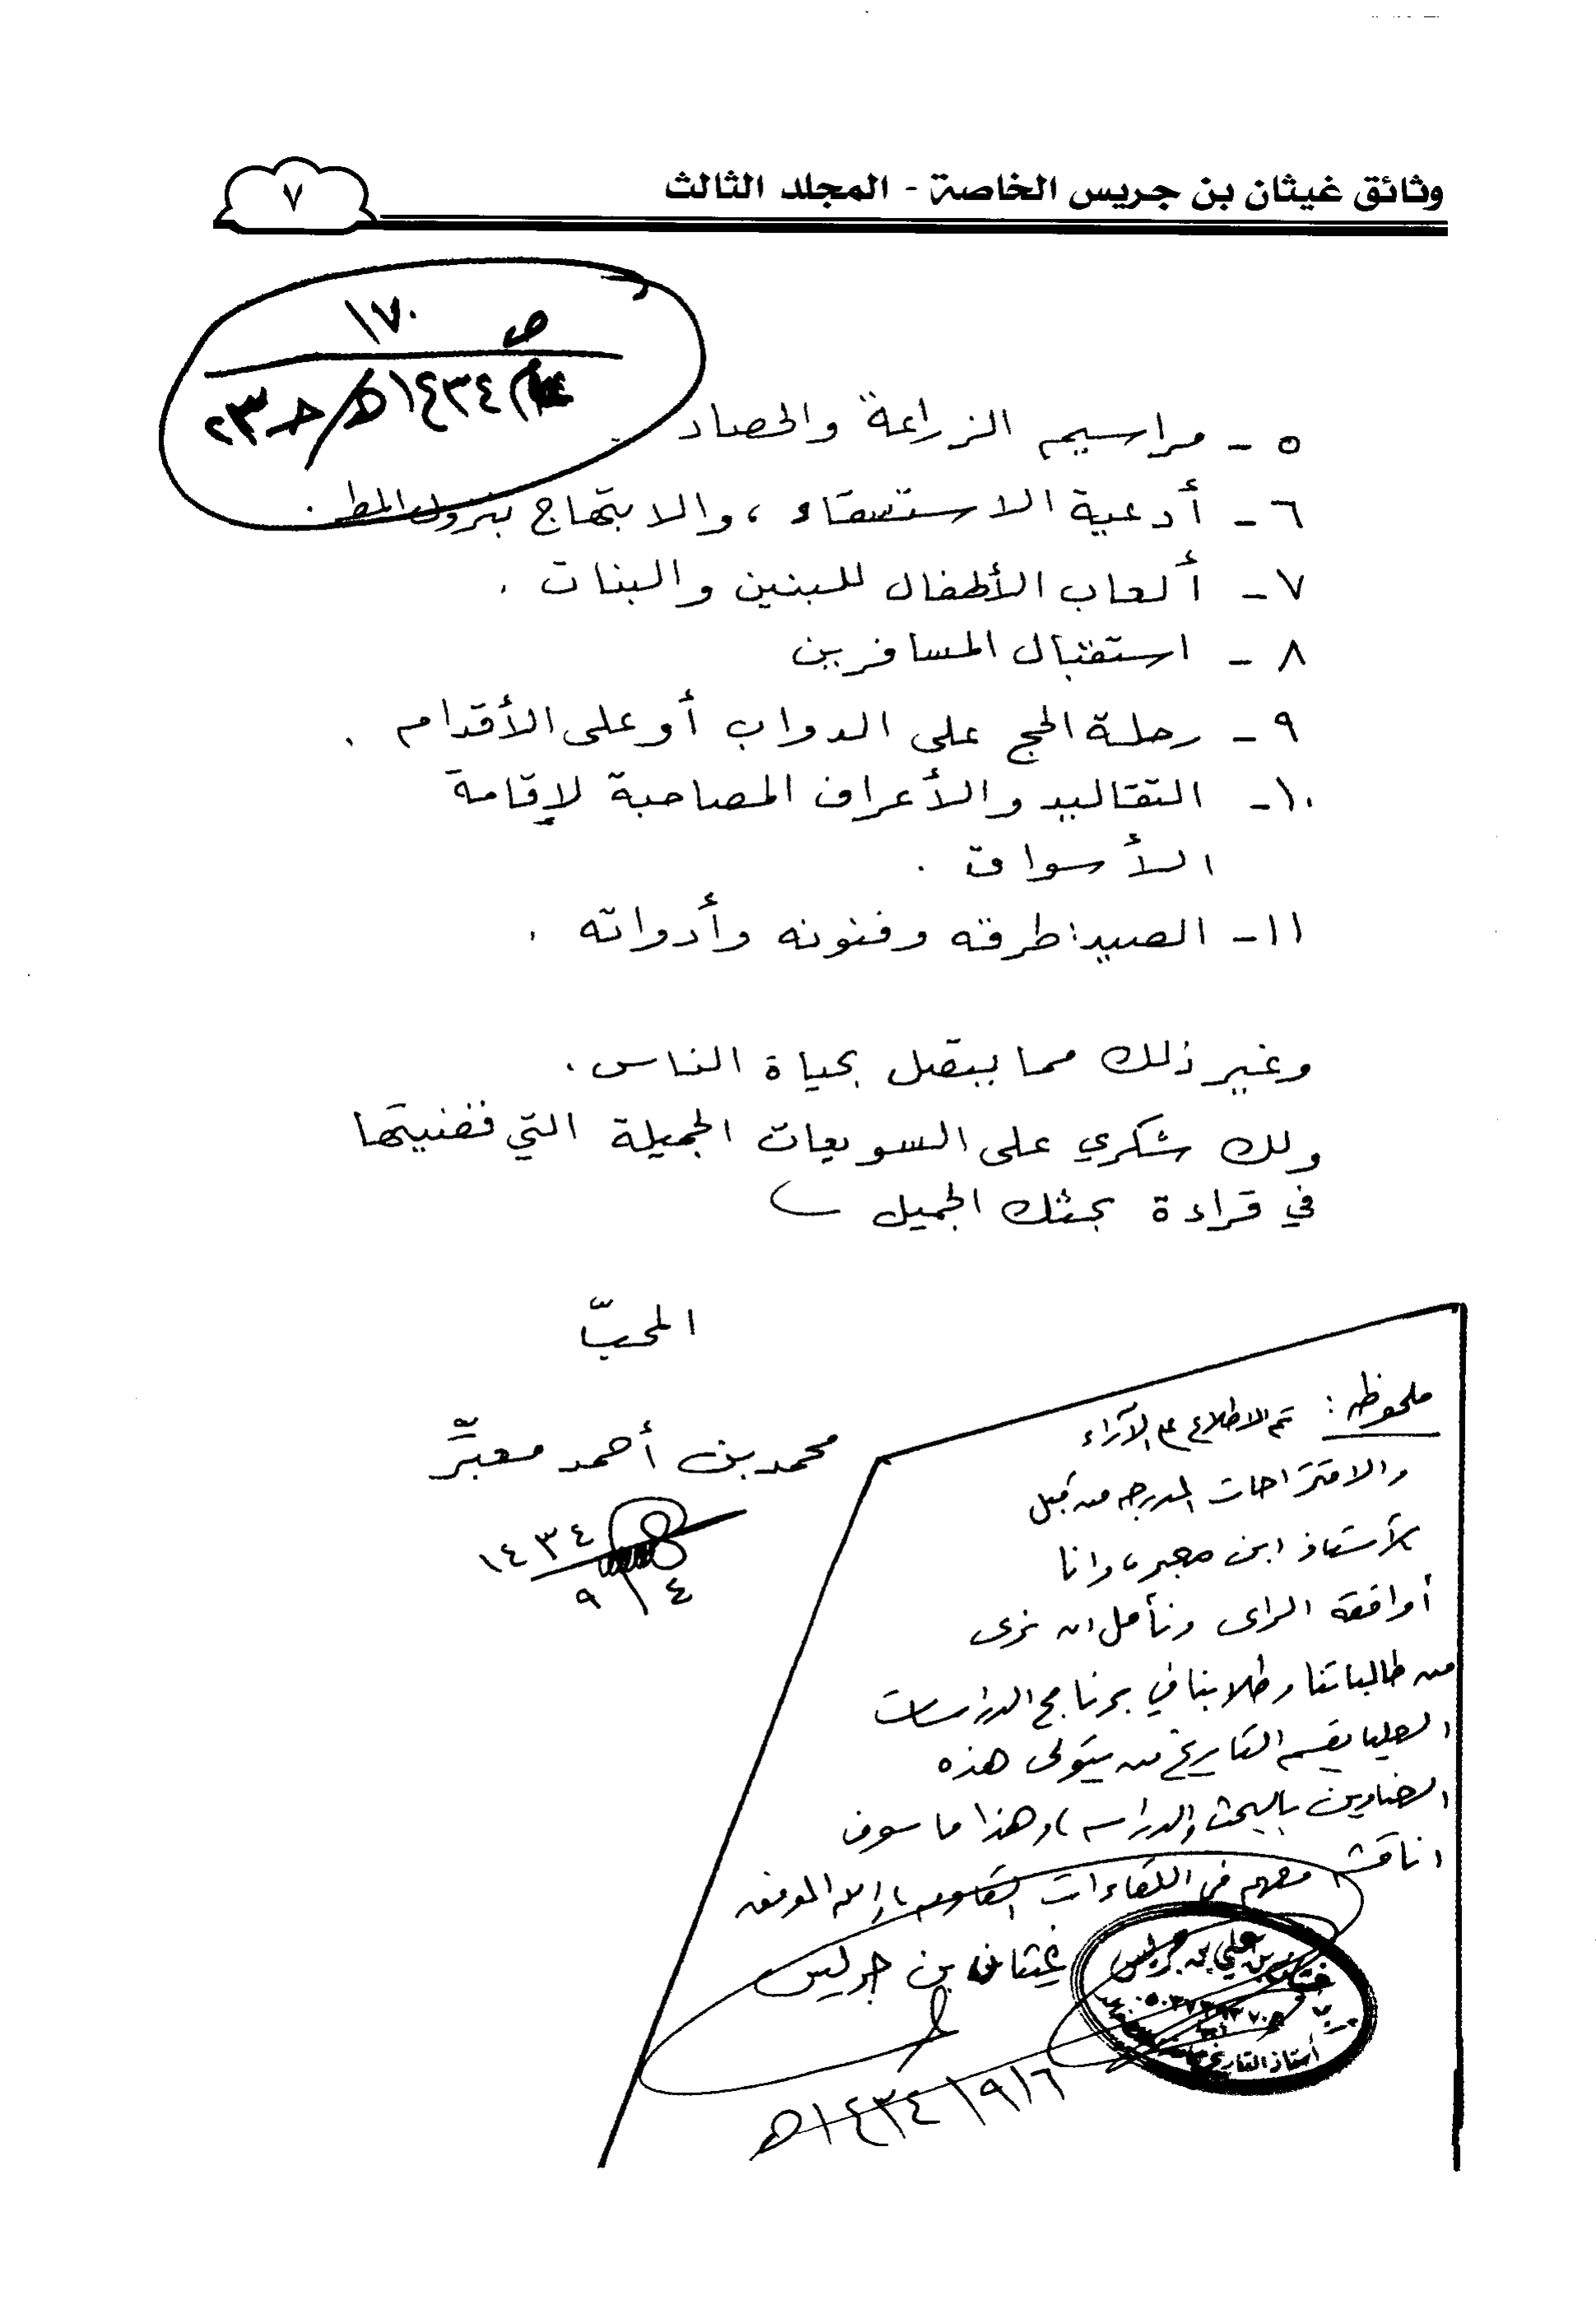 وثائق غيثان بن جريس الخاصة - المجلد الثالث
٧
ص ١٧٠
١٤٣٤هـ / حـ ٢٣
٥ - مراسيم الزراعة والحصاد
٦ - أدعية الاستسقاء ، والابتهاج بنزول المطر .
٧ - ألعاب الأطفال للبنين والبنات .
٨ - استقبال المسافرين
٩ - رحلة الحج على الدواب أو على الأقدام .
١٠ - التقاليد والأعراف المصاحبة لإقامة
الأسواق .
١١ - الصيد : طرقه وفنونه وأدواته .
وغير ذلك مما يتصل بحياة الناس .
ولك شكري على السويعات الجميلة التي قضيتها
في قراءة بحثك الجميل
المحبّ
محمد بن أحمد معبّر
١٤٣٤
٩/٤
ملحوظه : تم الاطلاع على الآراء
والاقتراحات المدرجه من قبل
الأستاذ ابن معبر ، وانا
أوافقه الراى ونأمل ان نرى
من طالباتنا وطلابنا في برنامج الدراسات
العليا بقسم التاريخ من يتولى هذه
العناوين بالبحث والدراسه ، وهذا ما سوف
اناقشه معهم في اللقاءات القادمه ، والله الموفق
غيثان بن جريس
١٤٣٤/٩/٦هـ
غيثان بن علي بن جريس
أستاذ التاريخ